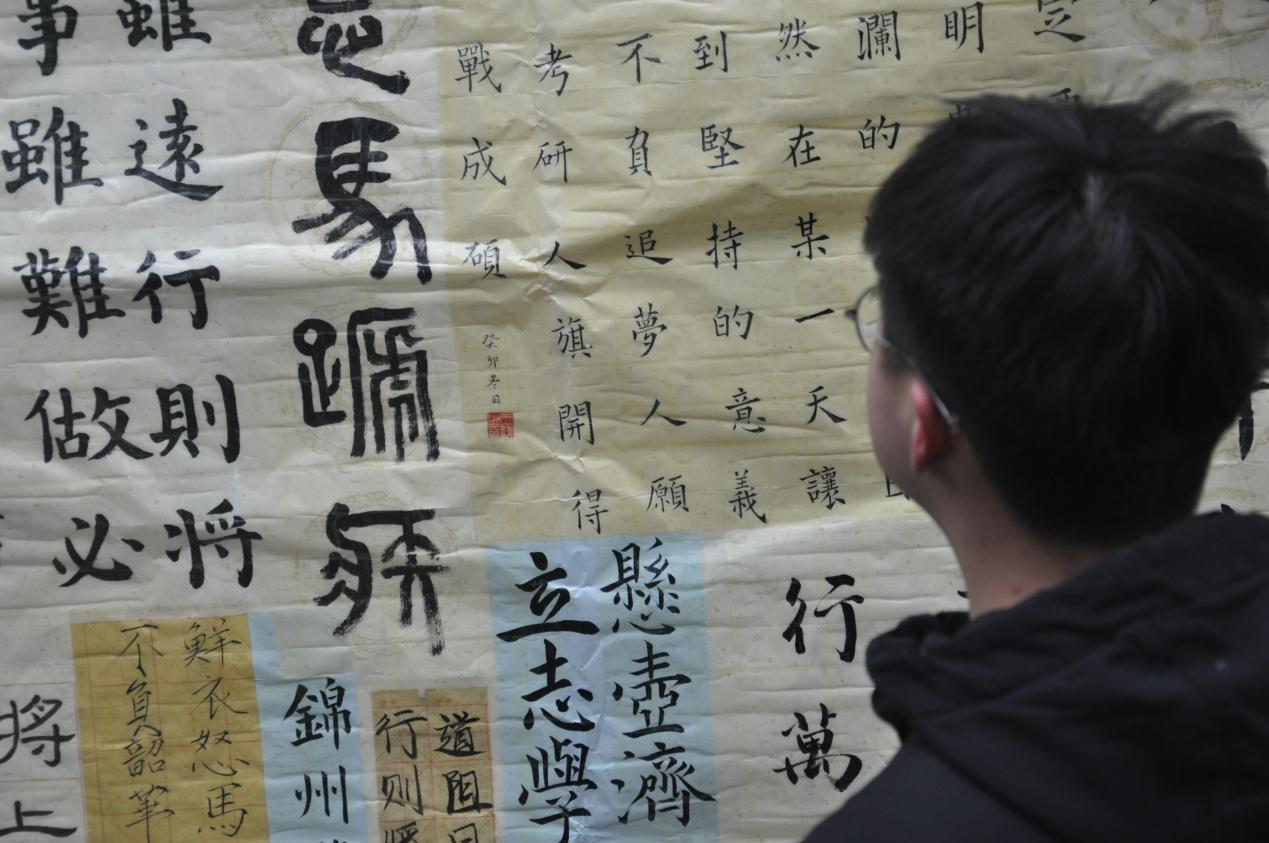 定
明
瀾的
然在某一天讓
到堅持的意義
不負追夢人願
考研人旗開得
戰成碩
癸卯冬日
意馬蹄疾
雖遠行則將
事雖難做必
行萬
懸壺濟
立志學
道阻
行则
錦州
鮮衣怒馬
不負韶華
將上